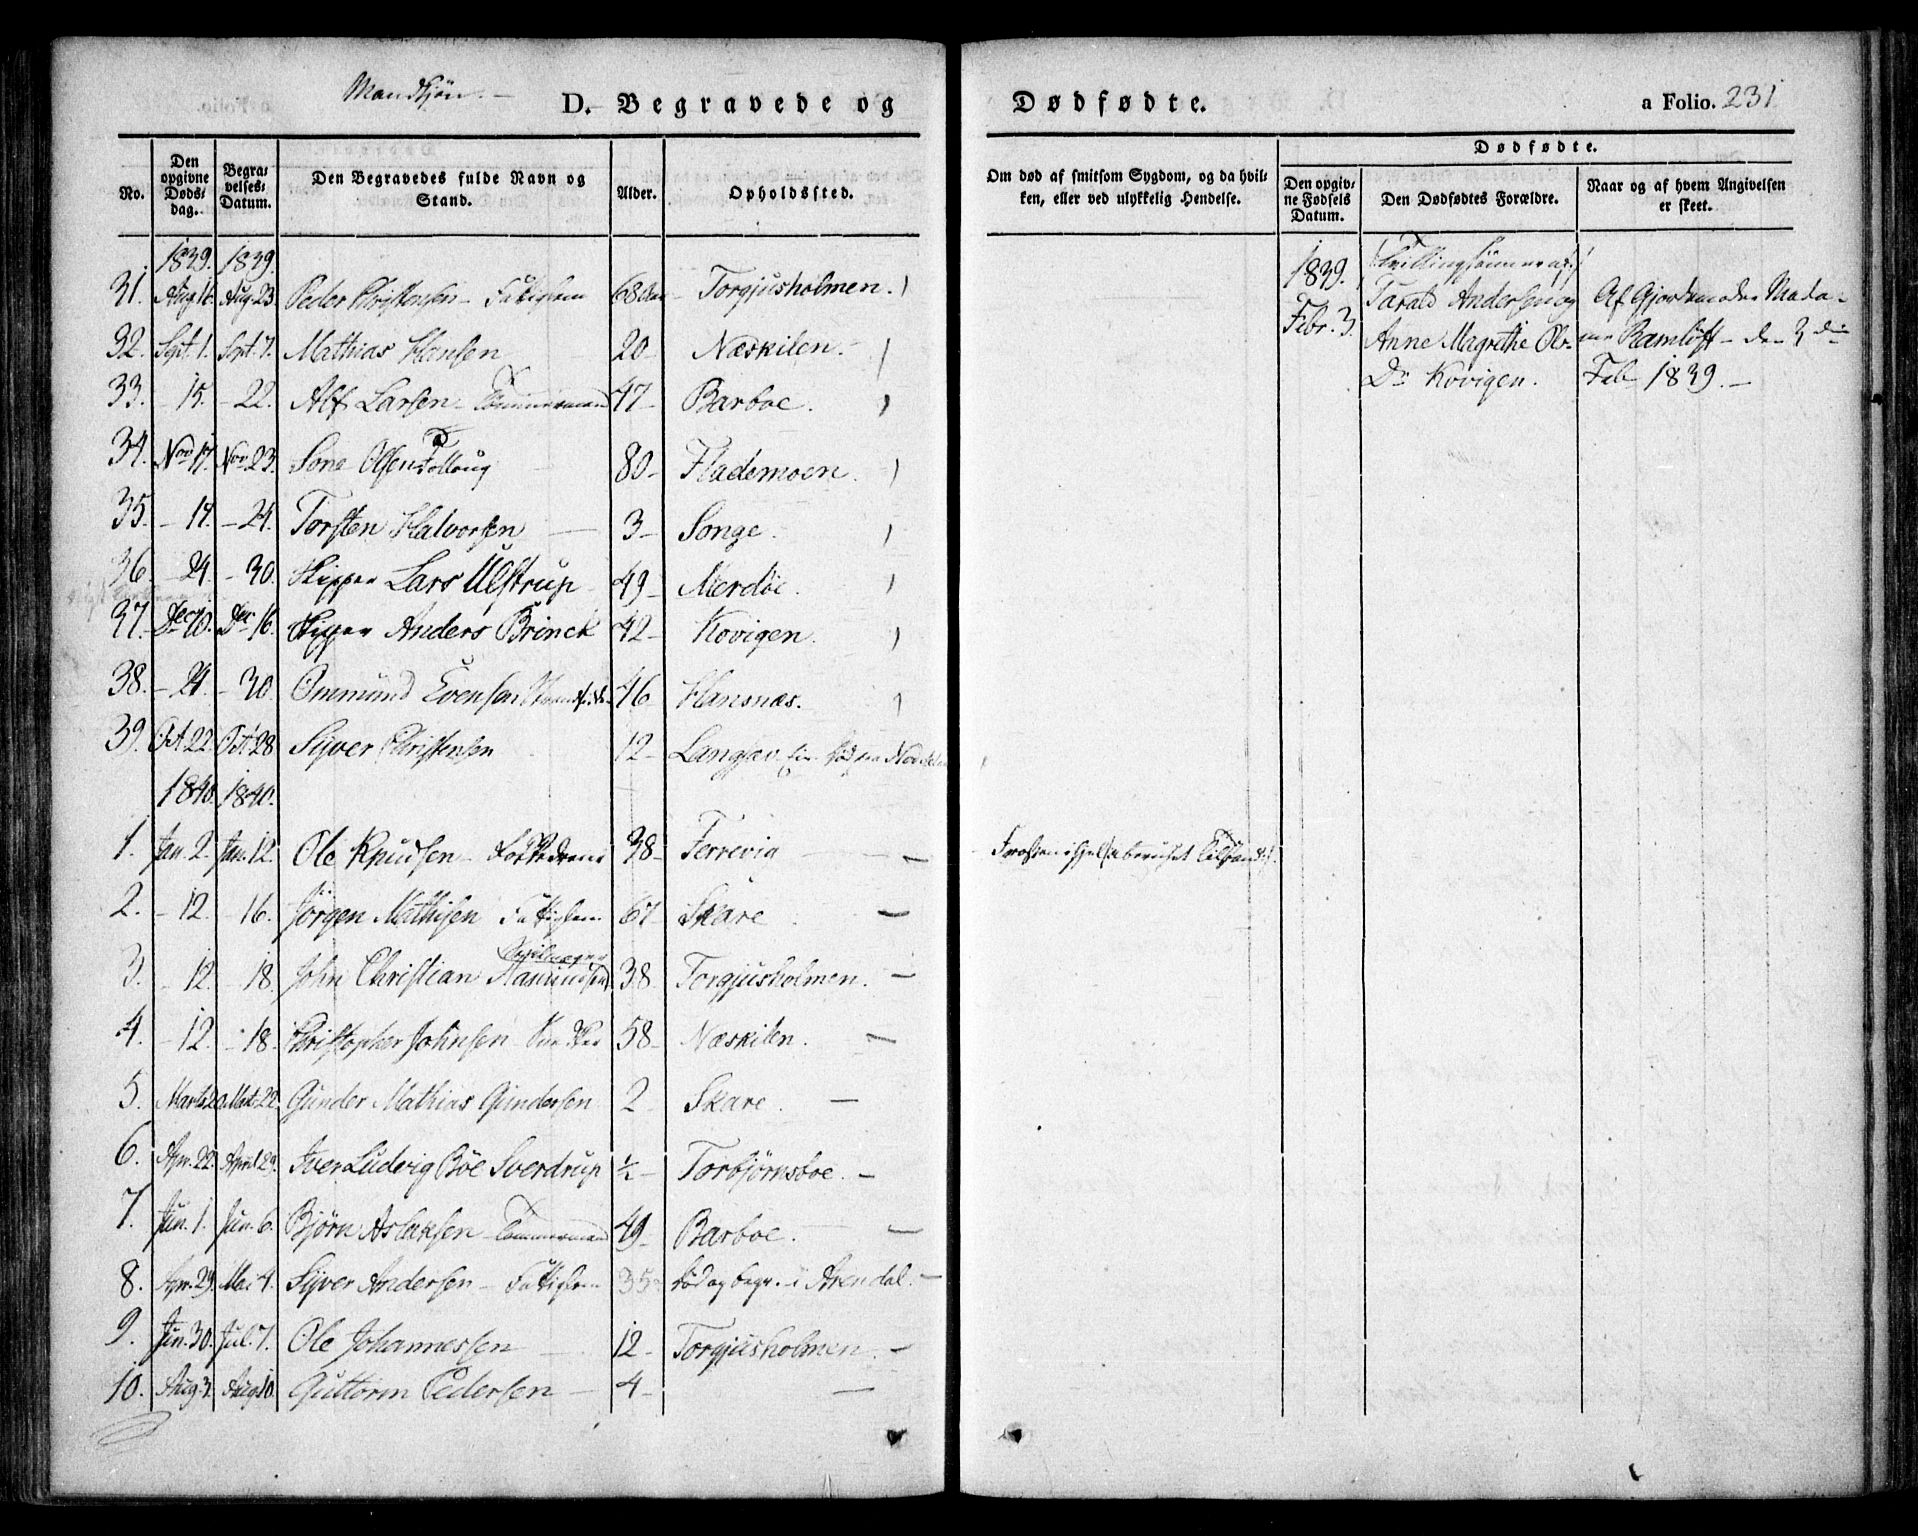 Mandkjøn. D. Begravede og Dødfødte. a Folio. 231
No. Den opgivne Døds-dag. Begra-velses-Datum. Den Begravedes fulde Navn og Stand. Alder. Opholdssted.
Om død af smitsom Sygdom, og da hvil-ken, eller ved ulykkelig Hendelse.
Dødfødte.
Den opgiv-ne Fødsels Datum. Den Dødfødtes Forældre. Naar og af hvem Angivelsen er skeet.
1839. 1839.
31. Aug 16. Aug. 23 Peder Christensen - Fattiglem 68 Aar - Torgjusholmen.
32. Sept. 1. Sept. 7. Mathias Hansen 20 - Næskilen.
33. - 15. - 22. Alf Larsen - Tømmermand 47 - Barboe.
34. Nov 17. Nov. 23. Sone Olsen 80 - Flademoen.
35. - 17. - 24. Torsten Halvorsen 3 - Songe.
36. - 24. - 30. Skipper Lars Ulstrup 49 - Merdöe.
37. Dec 10. Dec 16. Skipper Anders Brinck 42 - Kovigen.
38. - 24. - 30. Ommund Evensen 46 Hansnæs.
39. Oct 22. Oct. 28 Syver Christensen 12 - Langsæv
1840. 1840.
1. Jan. 2. Jan. 12. Ole Knudsen - 38 - Ferrevig
2. - 12. - 16. Jörgen Mathisen Fattiglem 67 - Skare
3. - 12. - 18. John Christian 38 Torgjusholmen.
4. - 12. - 18. Christopher Johnsen 58 - Næskilen.
5. Marts 20 Mats 22. Gunder Mathias Gundersen 2 - Skare.
6. Apr. 22. April 29. Iver Ludvig Böe Sverdrup ½ - Torbjörnsboe.
7. Jun. 1. Jun. 6. Björn Aslaksen - Tømmermand 49 - Barboe.
8. Apr. 29. Mai 4. Syver Andersen - Fattiglem 35 - död og begr. i Arendal.
9. Jun. 30. Jul. 7. Ole Johannessen 12 - Torgjusholmen.
10. Aug 3. Aug 10. Guttorm Pedersen - 4 -
Frossen ihjel beruset Tilstand.
1839. Tvillingsönner af
Febr. 3. Tarald Andersen og Af Gjordemoder Mada-
Anne Magrethe Ols- me Ramlöff - den 3 die
Dr Kovigen. Feb 1839. -